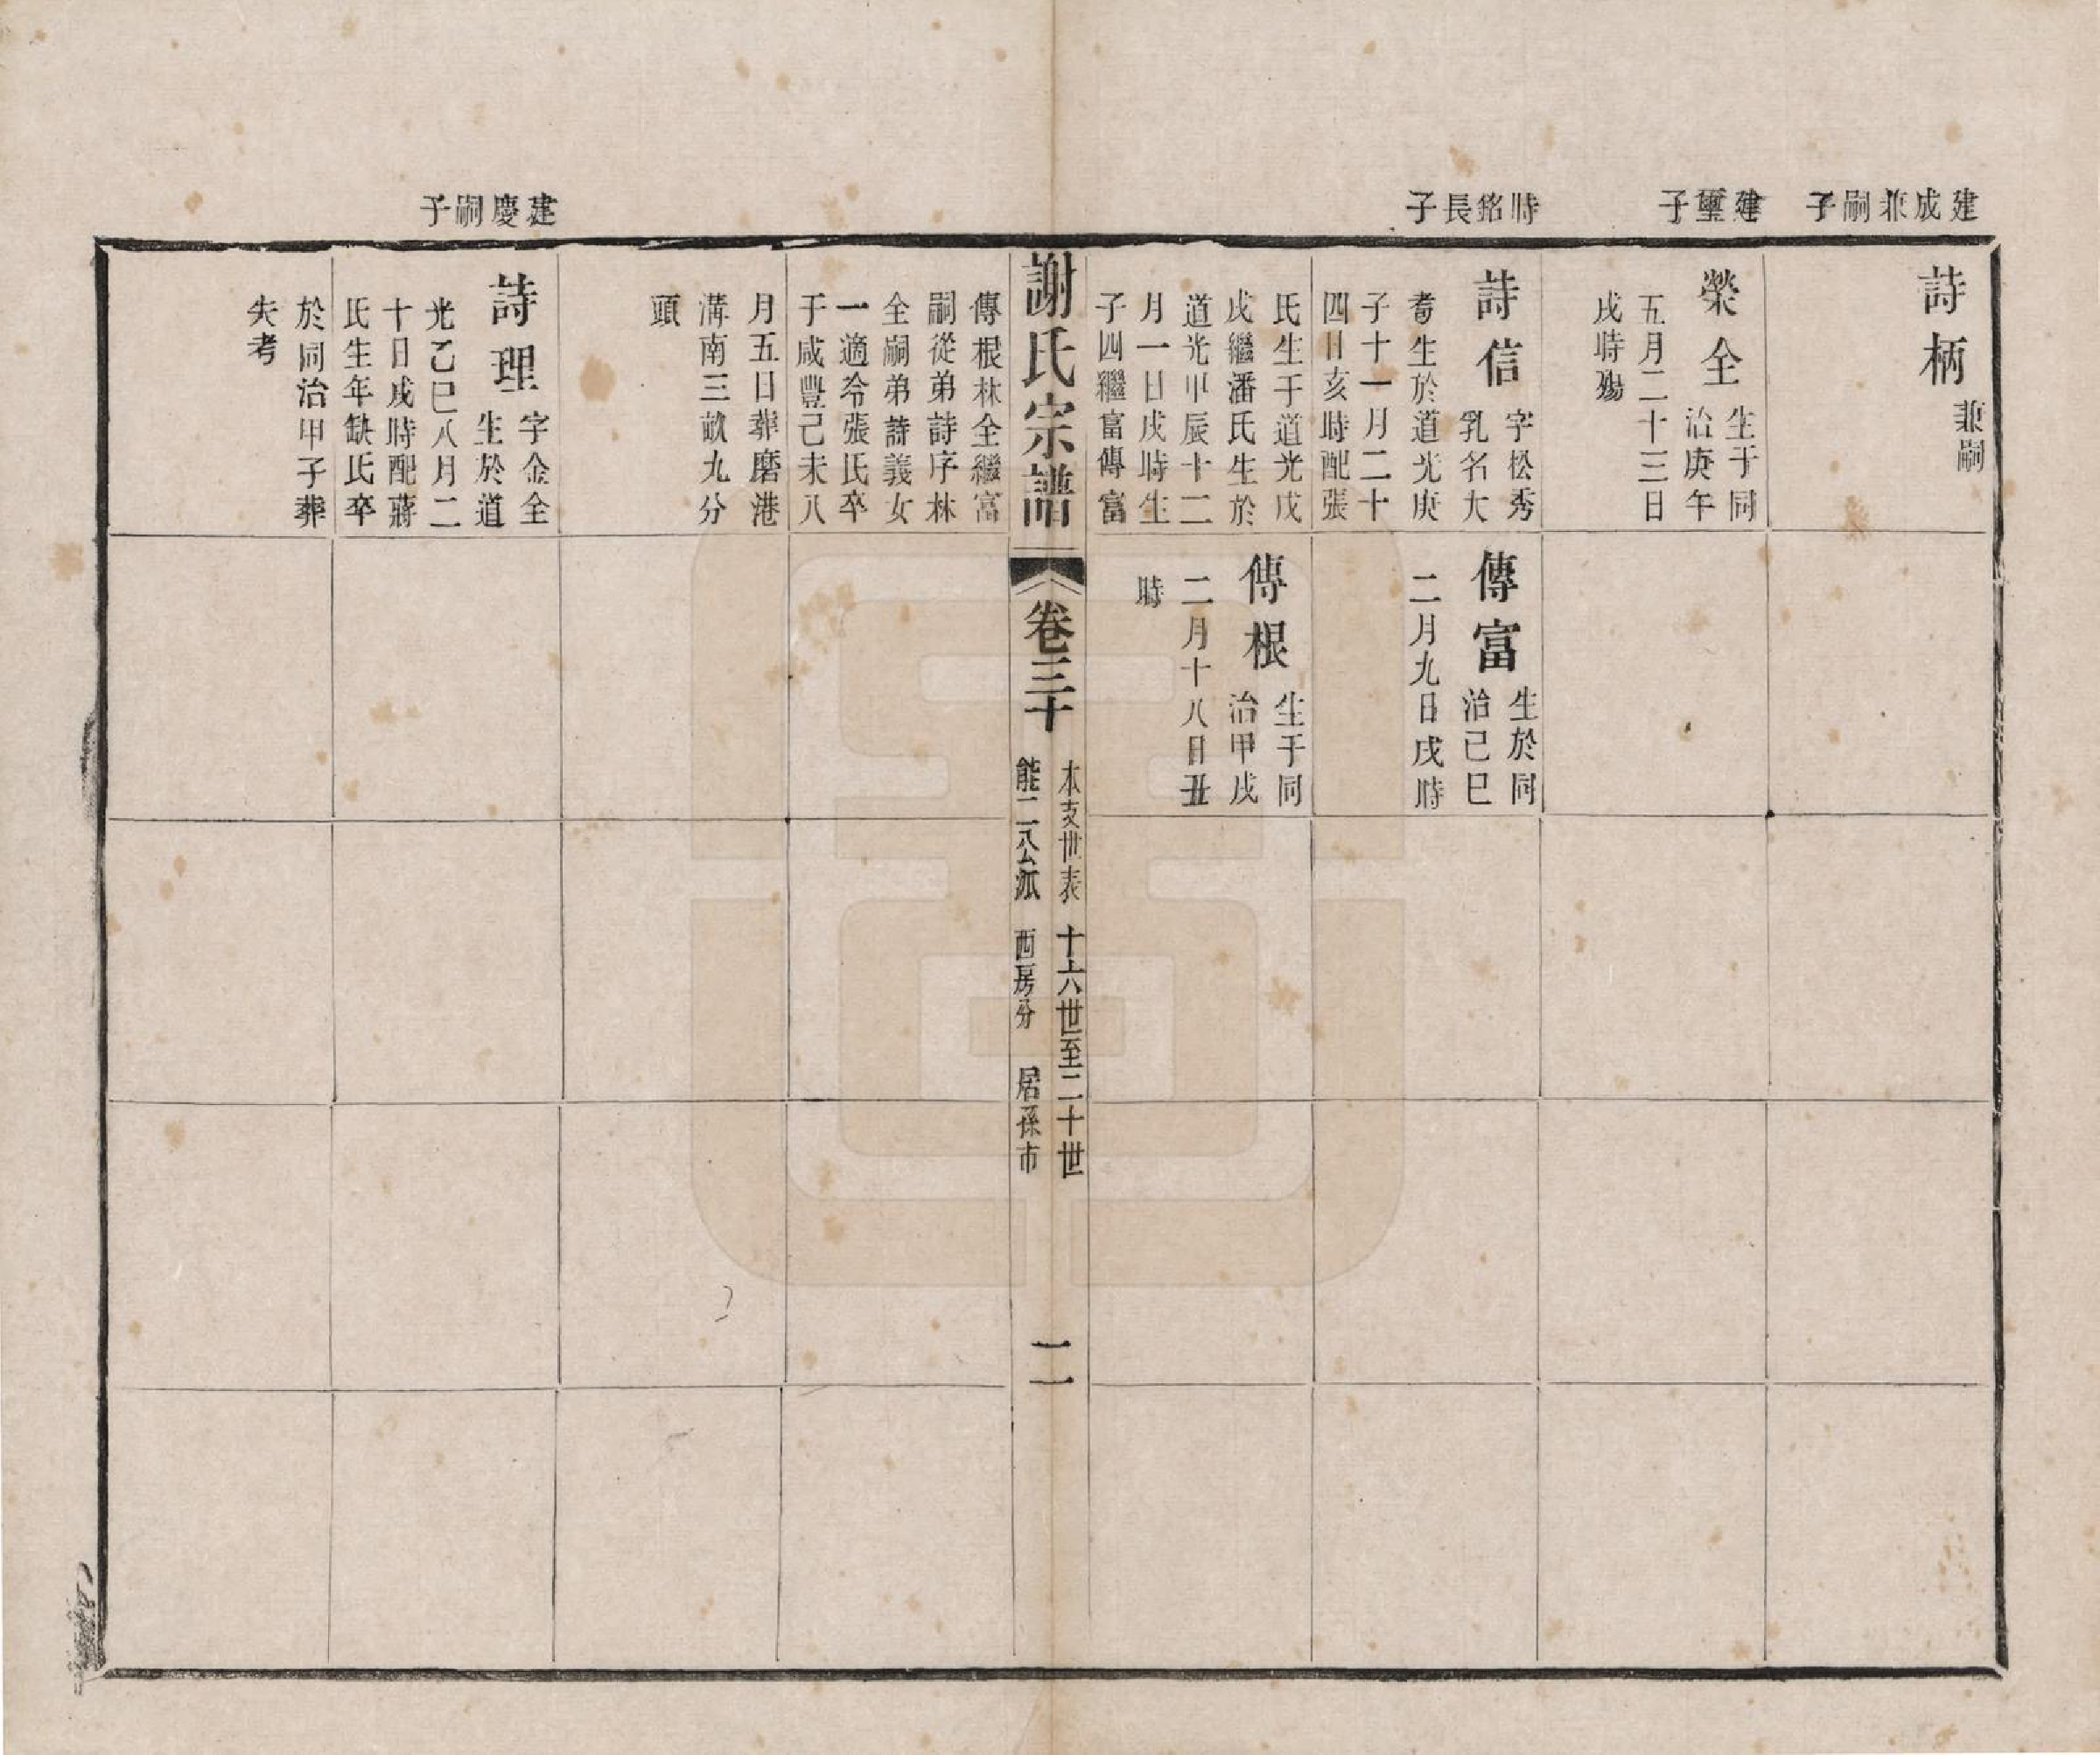 建成兼嗣子
詩柄
兼嗣
建璽子
榮全
生于同
治庚午
五月二十三日
戌時殤
時銘長子
詩信
字松秀
乳名大
耈生於道光庚
子十一月二十
四日亥時配張
氏生于道光戊
戌繼潘氏生於
道光甲辰十二
月一日戌時生
子四繼富傳富
傳富
生於同
治己巳
二月九日戌時
傳根
生于同
治甲戌
二月十八日丑
時
謝氏宗譜
卷三十
本支世表 十六世至二十世
能二公派 西房分 居孫市
二
傳根林全繼富
嗣從弟詩序林
全嗣弟詩義女
一適冷張氏卒
于咸豐己未八
月五日葬磨港
溝南三畝九分
頭
建慶嗣子
詩理
字金全
生於道
光乙巳八月二
十日戌時配蔣
氏生年缺氏卒
於同治甲子葬
失考